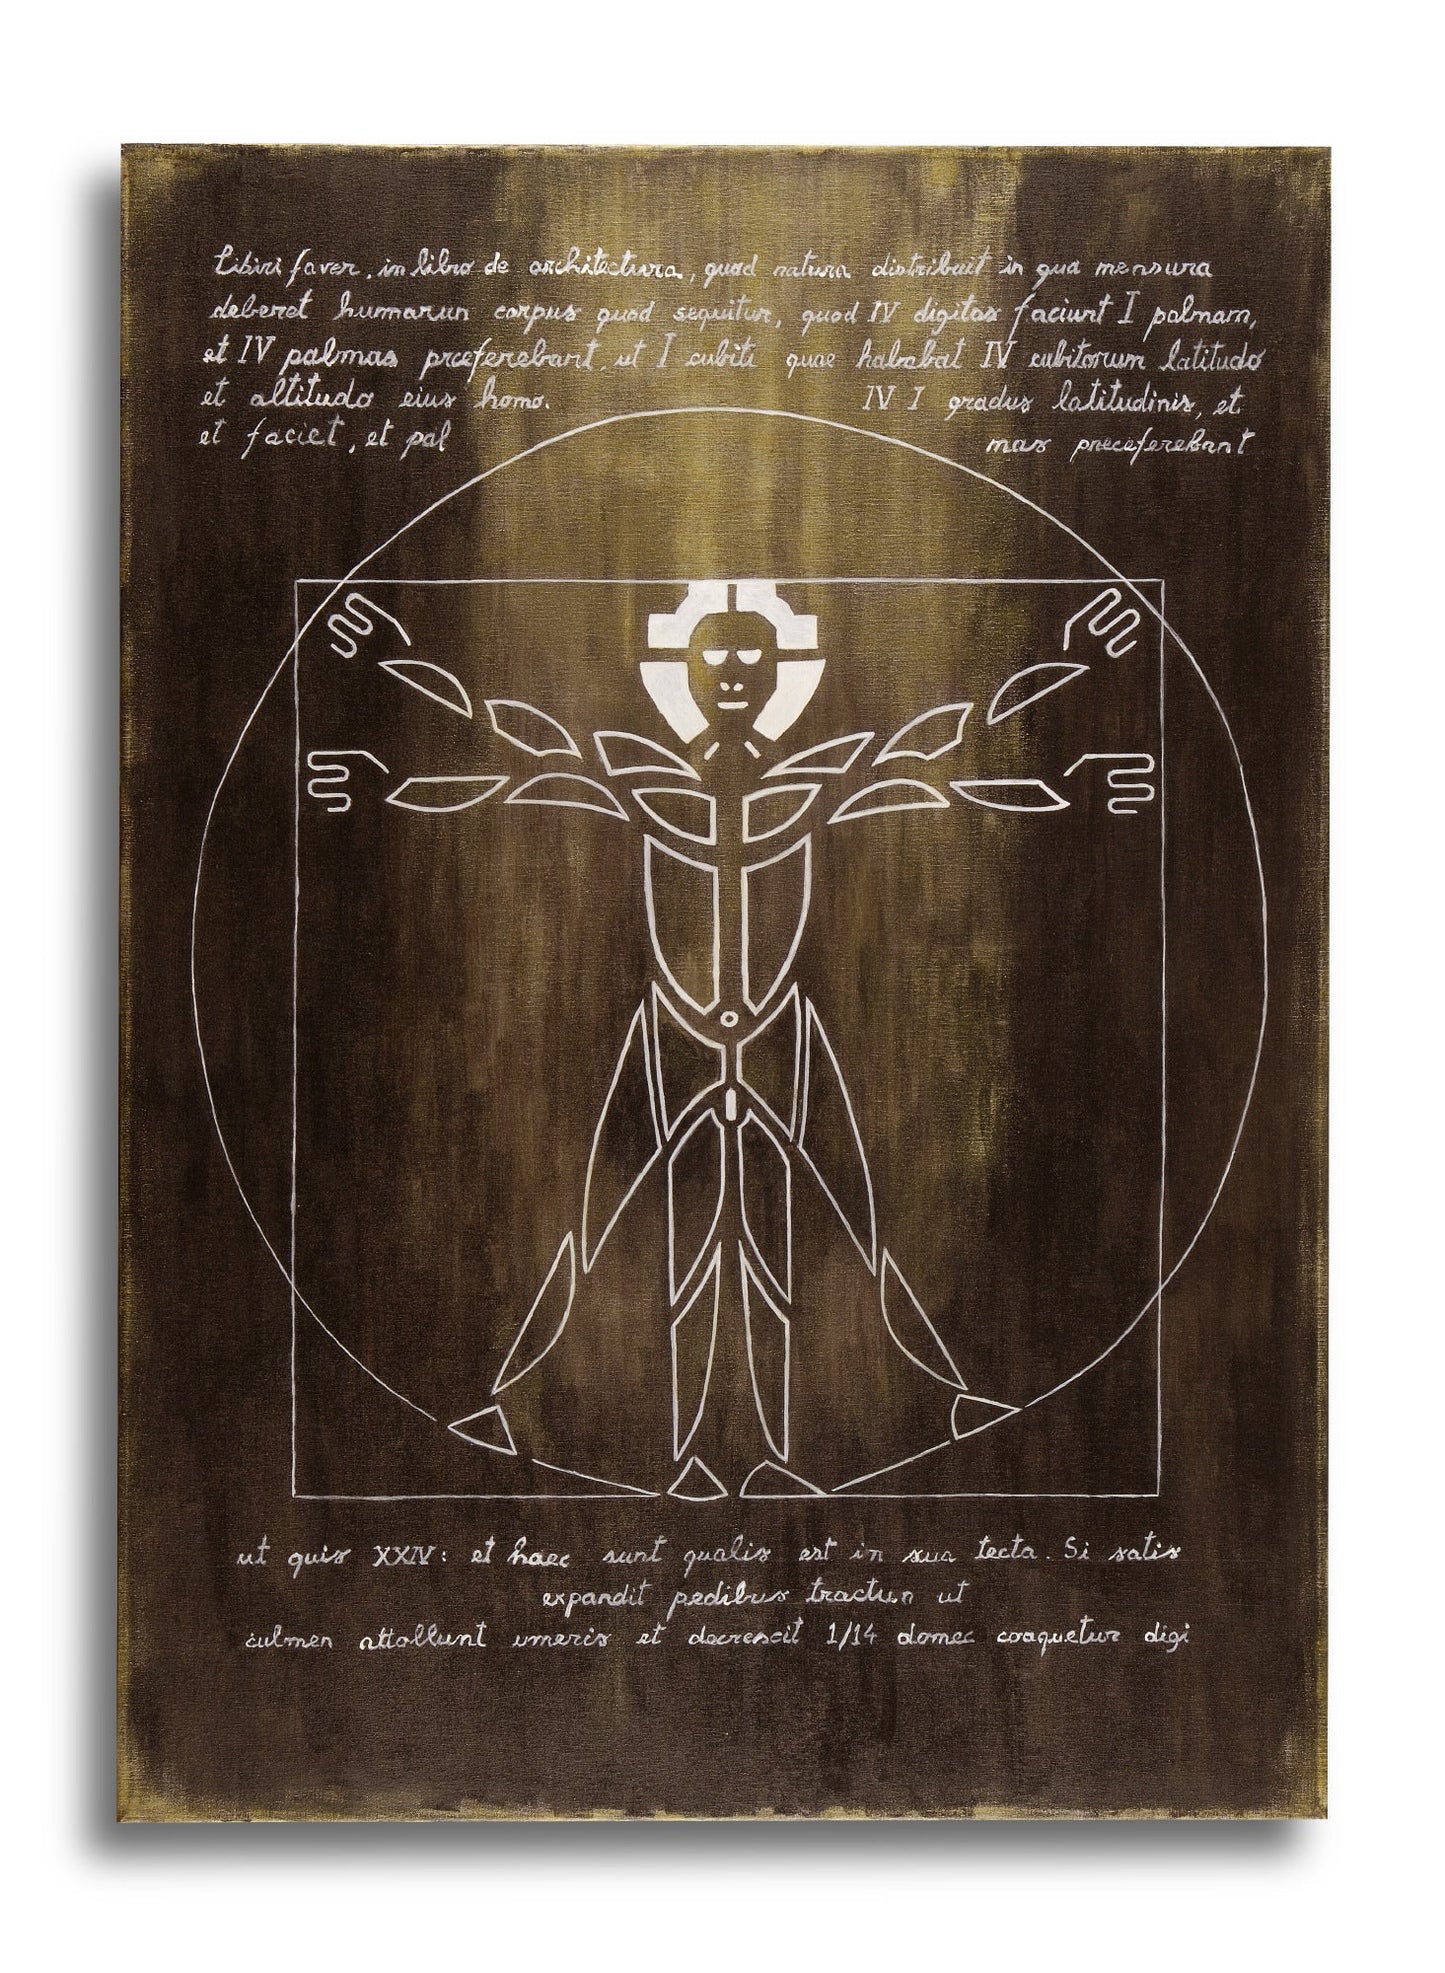 Libiri faver, in libro de architectura, quod natura distribuit in qua mensura
deberet humarun corpus quod sequitur, quod IV digitos faciunt I palmam,
et IV palmas præferebant, ut I cubiti quae habebat IV cubitorum latitudo
et altitudo eius homo. IV I gradus latitudinis, et
et faciet, et pal mas præceferebant
ut quis XXIV: et haec sunt qualis est in sua tecta. Si satis
expandit pedibus tractun ut
culmen attollunt umeris et decrescit 1/14 domec coaquetur digi